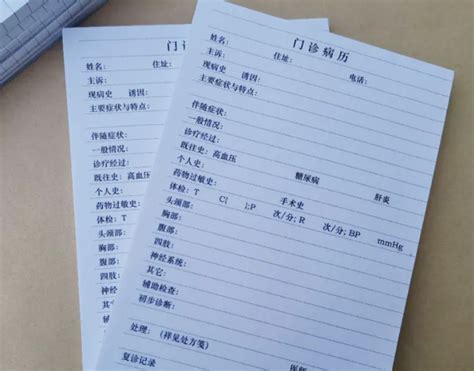 门诊病历
姓名： 住址： 电话：
主诉：
现病史 诱因：
主要症状与特点：
伴随症状：
一般情况：
诊疗经过：
既往史：高血压 糖尿病 肝炎
个人史：
药物过敏史： 手术史
体检：T C[ ];P 次/分; R 次/分; BP mmHg
头颈部：
胸部：
腹部：
四肢：
神经系统：
其它：
辅助检查：
初步诊断：
处理：（祥见处方笺）
医师
复诊记录
门诊
姓名： 住址：
主诉：
现病史 诱因：
主要症状与特点：
伴随症状：
一般情况：
诊疗经过：
既往史：高血压
个人史：
药物过敏史：
体检：T
头颈部：
胸部：
腹部：
四肢：
神经系统：
其它：
辅助检查
初步诊断
处理：（
复诊记